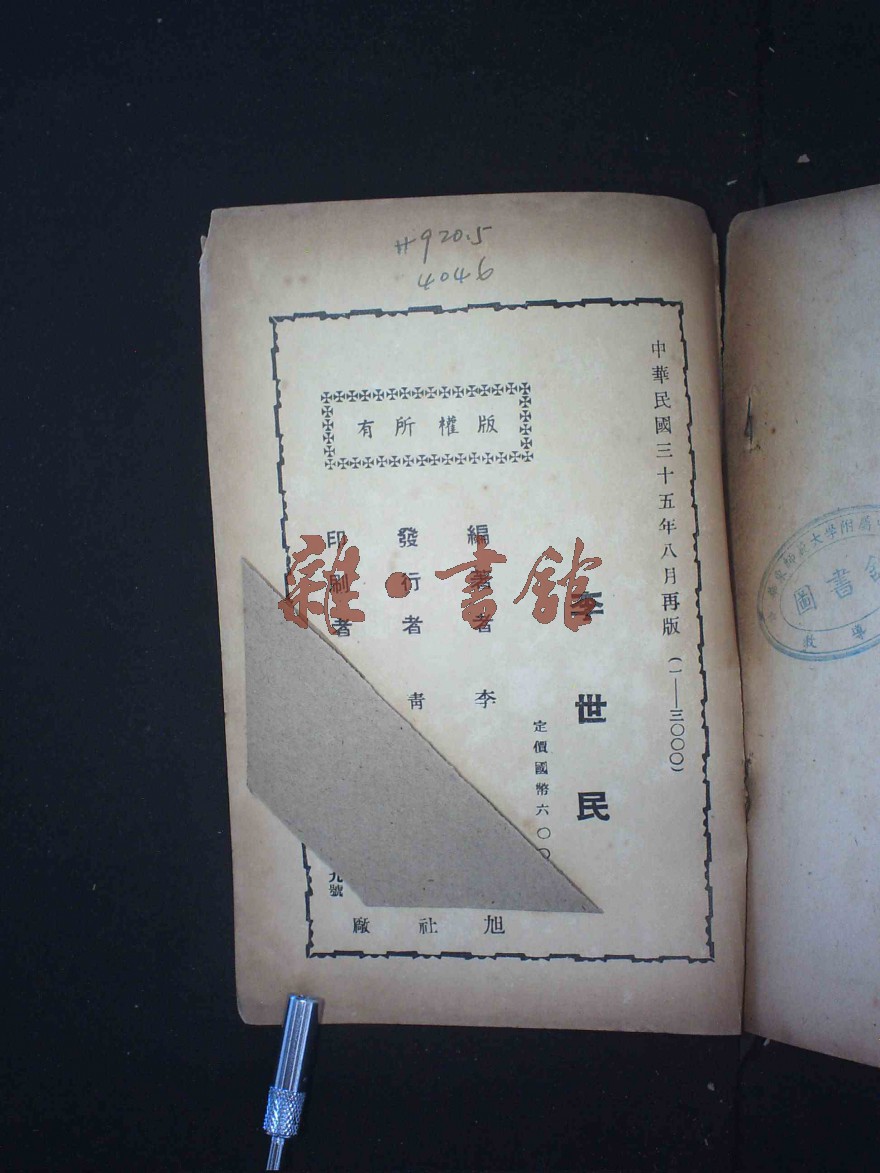 H920.5
4046
中華民國三十五年八月再版(一——三〇〇〇)
李世民
定價國幣六〇〇
版權所有
編著者 李
旭
發行者 青
社
印刷者
九號
廠
雜·書館
大學附屬
圖書館